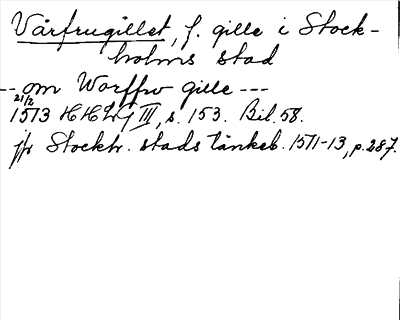 Vårfrugillet, f. gille i Stock-
holms stad
-- om Worffrw gille ---
21/2
1513 HHLg III, s. 153. Bil. 58.
jfr Stockh. stads tänkeb. 1511-13, p. 287.